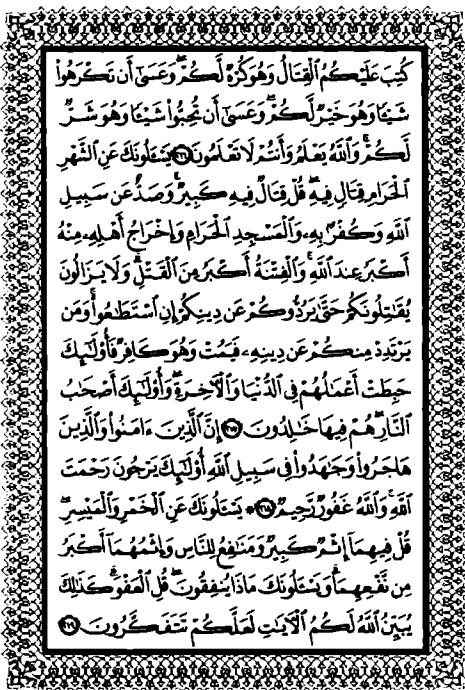 كُتِبَ عَلَيْكُمُ ٱلْقِتَالُ وَهُوَ كُرْهٌ لَّكُمْ ۖ وَعَسَىٰٓ أَن تَكْرَهُوا۟
شَيْـًٔا وَهُوَ خَيْرٌ لَّكُمْ ۖ وَعَسَىٰٓ أَن تُحِبُّوا۟ شَيْـًٔا وَهُوَ شَرٌّ
لَّكُمْ ۗ وَٱللَّهُ يَعْلَمُ وَأَنتُمْ لَا تَعْلَمُونَ ٢١٦ يَسْـَٔلُونَكَ عَنِ ٱلشَّهْرِ
ٱلْحَرَامِ قِتَالٍ فِيهِ ۖ قُلْ قِتَالٌ فِيهِ كَبِيرٌ ۖ وَصَدٌّ عَن سَبِيلِ
ٱللَّهِ وَكُفْرٌۢ بِهِۦ وَٱلْمَسْجِدِ ٱلْحَرَامِ وَإِخْرَاجُ أَهْلِهِۦ مِنْهُ
أَكْبَرُ عِندَ ٱللَّهِ ۚ وَٱلْفِتْنَةُ أَكْبَرُ مِنَ ٱلْقَتْلِ ۗ وَلَا يَزَالُونَ
يُقَـٰتِلُونَكُمْ حَتَّىٰ يَرُدُّوكُمْ عَن دِينِكُمْ إِنِ ٱسْتَطَـٰعُوا۟ ۚ وَمَن
يَرْتَدِدْ مِنكُمْ عَن دِينِهِۦ فَيَمُتْ وَهُوَ كَافِرٌ فَأُو۟لَـٰٓئِكَ
حَبِطَتْ أَعْمَـٰلُهُمْ فِى ٱلدُّنْيَا وَٱلْـَٔاخِرَةِ ۖ وَأُو۟لَـٰٓئِكَ أَصْحَـٰبُ
ٱلنَّارِ ۖ هُمْ فِيهَا خَـٰلِدُونَ ٢١٧ إِنَّ ٱلَّذِينَ ءَامَنُوا۟ وَٱلَّذِينَ
هَاجَرُوا۟ وَجَـٰهَدُوا۟ فِى سَبِيلِ ٱللَّهِ أُو۟لَـٰٓئِكَ يَرْجُونَ رَحْمَتَ
ٱللَّهِ ۚ وَٱللَّهُ غَفُورٌ رَّحِيمٌ ٢١٨ ۞ يَسْـَٔلُونَكَ عَنِ ٱلْخَمْرِ وَٱلْمَيْسِرِ ۖ
قُلْ فِيهِمَآ إِثْمٌ كَبِيرٌ وَمَنَـٰفِعُ لِلنَّاسِ وَإِثْمُهُمَآ أَكْبَرُ
مِن نَّفْعِهِمَا ۗ وَيَسْـَٔلُونَكَ مَاذَا يُنفِقُونَ قُلِ ٱلْعَفْوَ ۗ كَذَٰلِكَ
يُبَيِّنُ ٱللَّهُ لَكُمُ ٱلْـَٔايَـٰتِ لَعَلَّكُمْ تَتَفَكَّرُونَ ٢١٩